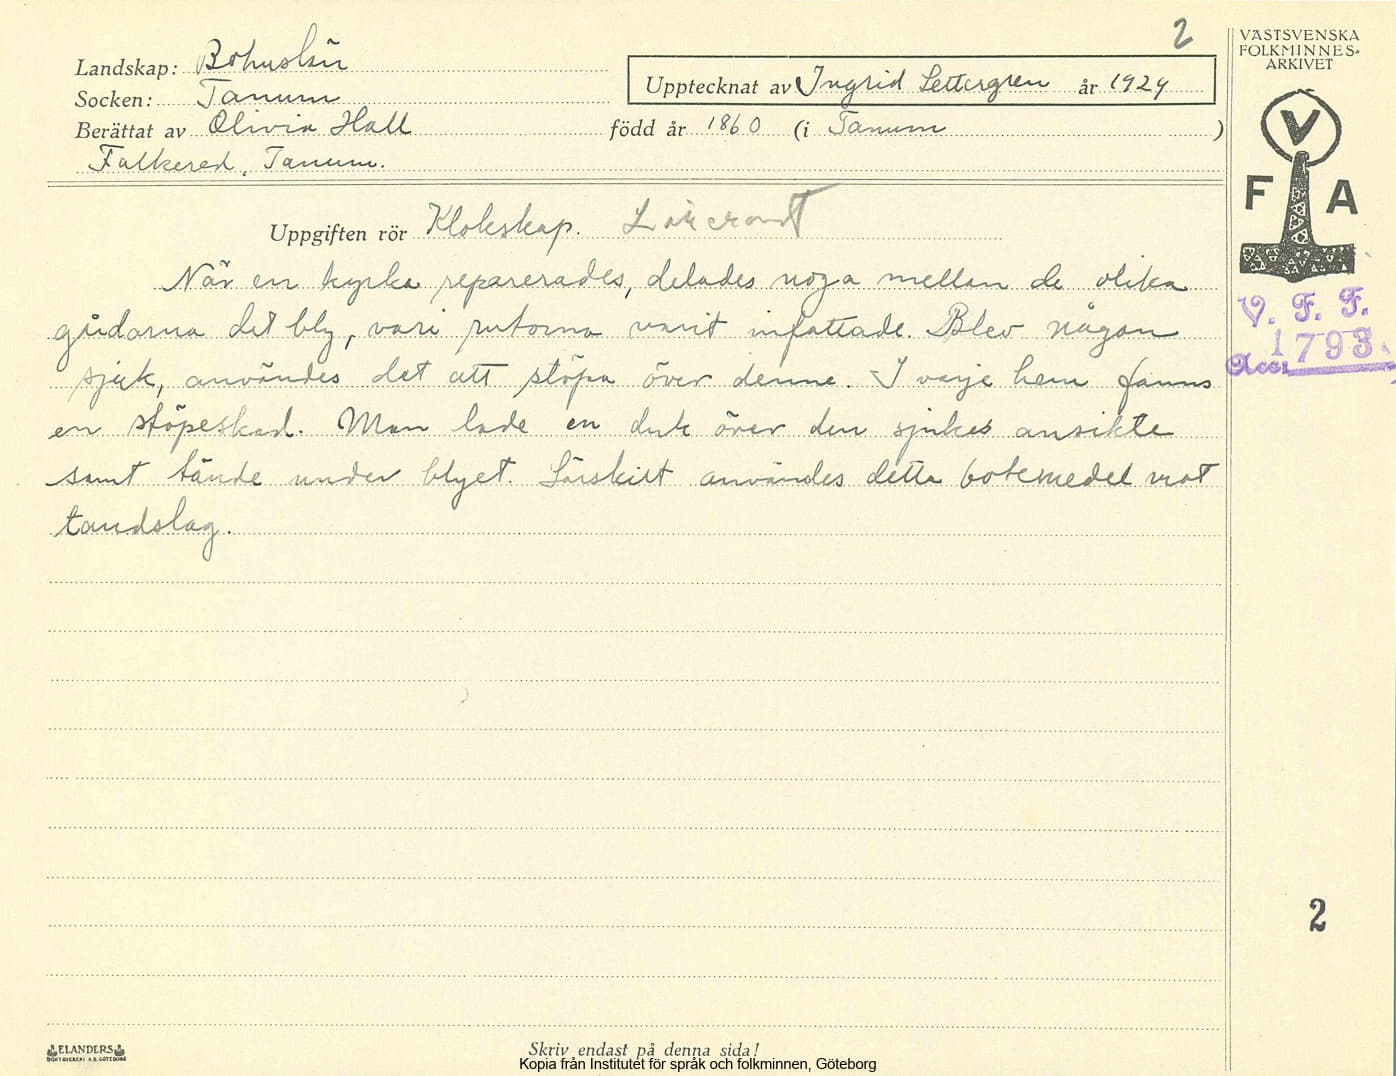 2
Landskap: Bohuslän
Socken: Tanum
Upptecknat av Ingrid Settergren år 1929
Berättat av Olivia Hall född år 1860 (i Tanum )
Falkered, Tanum.
Uppgiften rör Klokskap.
När en kyrka reparerades, delades noga mellan de olika
gårdarna det bly, vari rutorna varit infattade. Blev någon
sjuk, användes det att stöpa över denne. I varje hem fanns
en stöpeskad. Man lade en duk över den sjukes ansikte
samt tände under blyet. Särskilt användes detta botemedel mot
tandslag.
VÄSTSVENSKA
FOLKMINNES-
ARKIVET
V
F A
V. F. F.
1793
Acc.
2
ELANDERS
BOKTRYCKERI A.B. GÖTEBORG
Skriv endast på denna sida!
Kopia från Institutet för språk och folkminnen, Göteborg